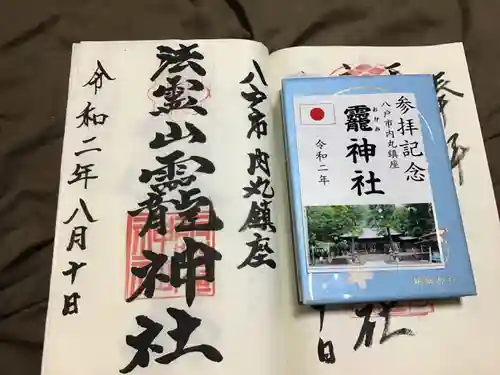 参拝記念
八戸市内丸鎮座
おがみ
龗神社
令和二年
八戸市内丸鎮座
法霊山龗神社
令和二年八月十日
社
日